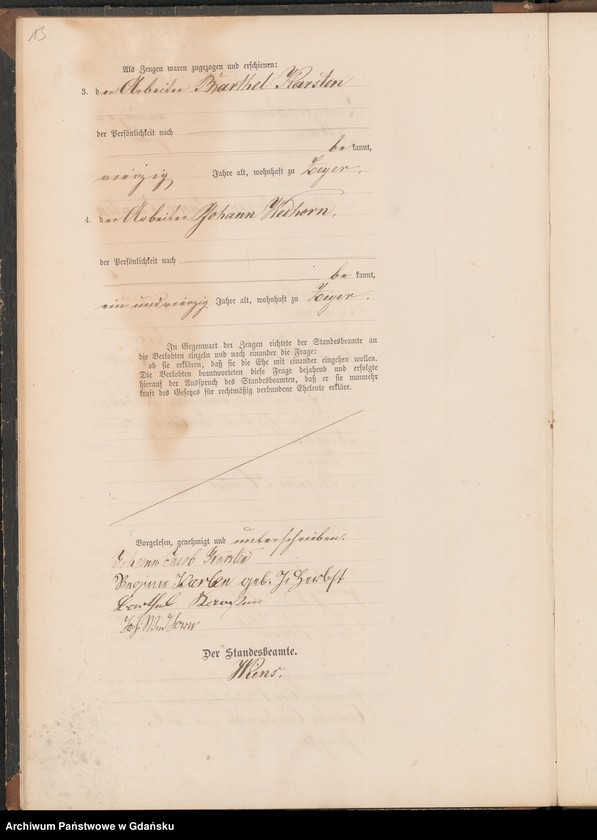 13
Als Zeugen waren zugezogen und erschienen:
3. der Arbeiter Barthel Karsten
der Persönlichkeit nach
be kannt,
vierzig Jahre alt, wohnhaft zu Zeyer.
4. der Arbeiter Johann Wedhorn,
der Persönlichkeit nach
be kannt,
ein und vierzig Jahre alt, wohnhaft zu Zeyer.
In Gegenwart der Zeugen richtete der Standesbeamte an
die Verlobten einzeln und nach einander die Frage:
ob sie erklären, daß sie die Ehe mit einander eingehen wollen.
Die Verlobten beantworteten diese Frage bejahend und erfolgte
hierauf der Ausspruch des Standesbeamten, daß er sie nunmehr
kraft des Gesetzes für rechtmäßig verbundene Eheleute erkläre.
Vorgelesen, genehmigt und unterschrieben.
Johann Jacob Karsten
Regine Karsten geb. Herbst
Barthel Karsten
Joh. Wedhorn
Der Standesbeamte.
Wiens.
Archiwum Państwowe w Gdańsku